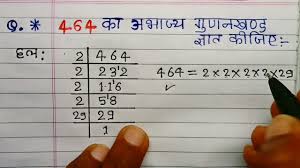 Q.* 464 का अभाज्य गुणनखण्ड
ज्ञात कीजिए:-
हल:-
2 | 464
2 | 232
2 | 116
2 | 58
29 | 29
1
464 = 2×2×2×2×29
✓